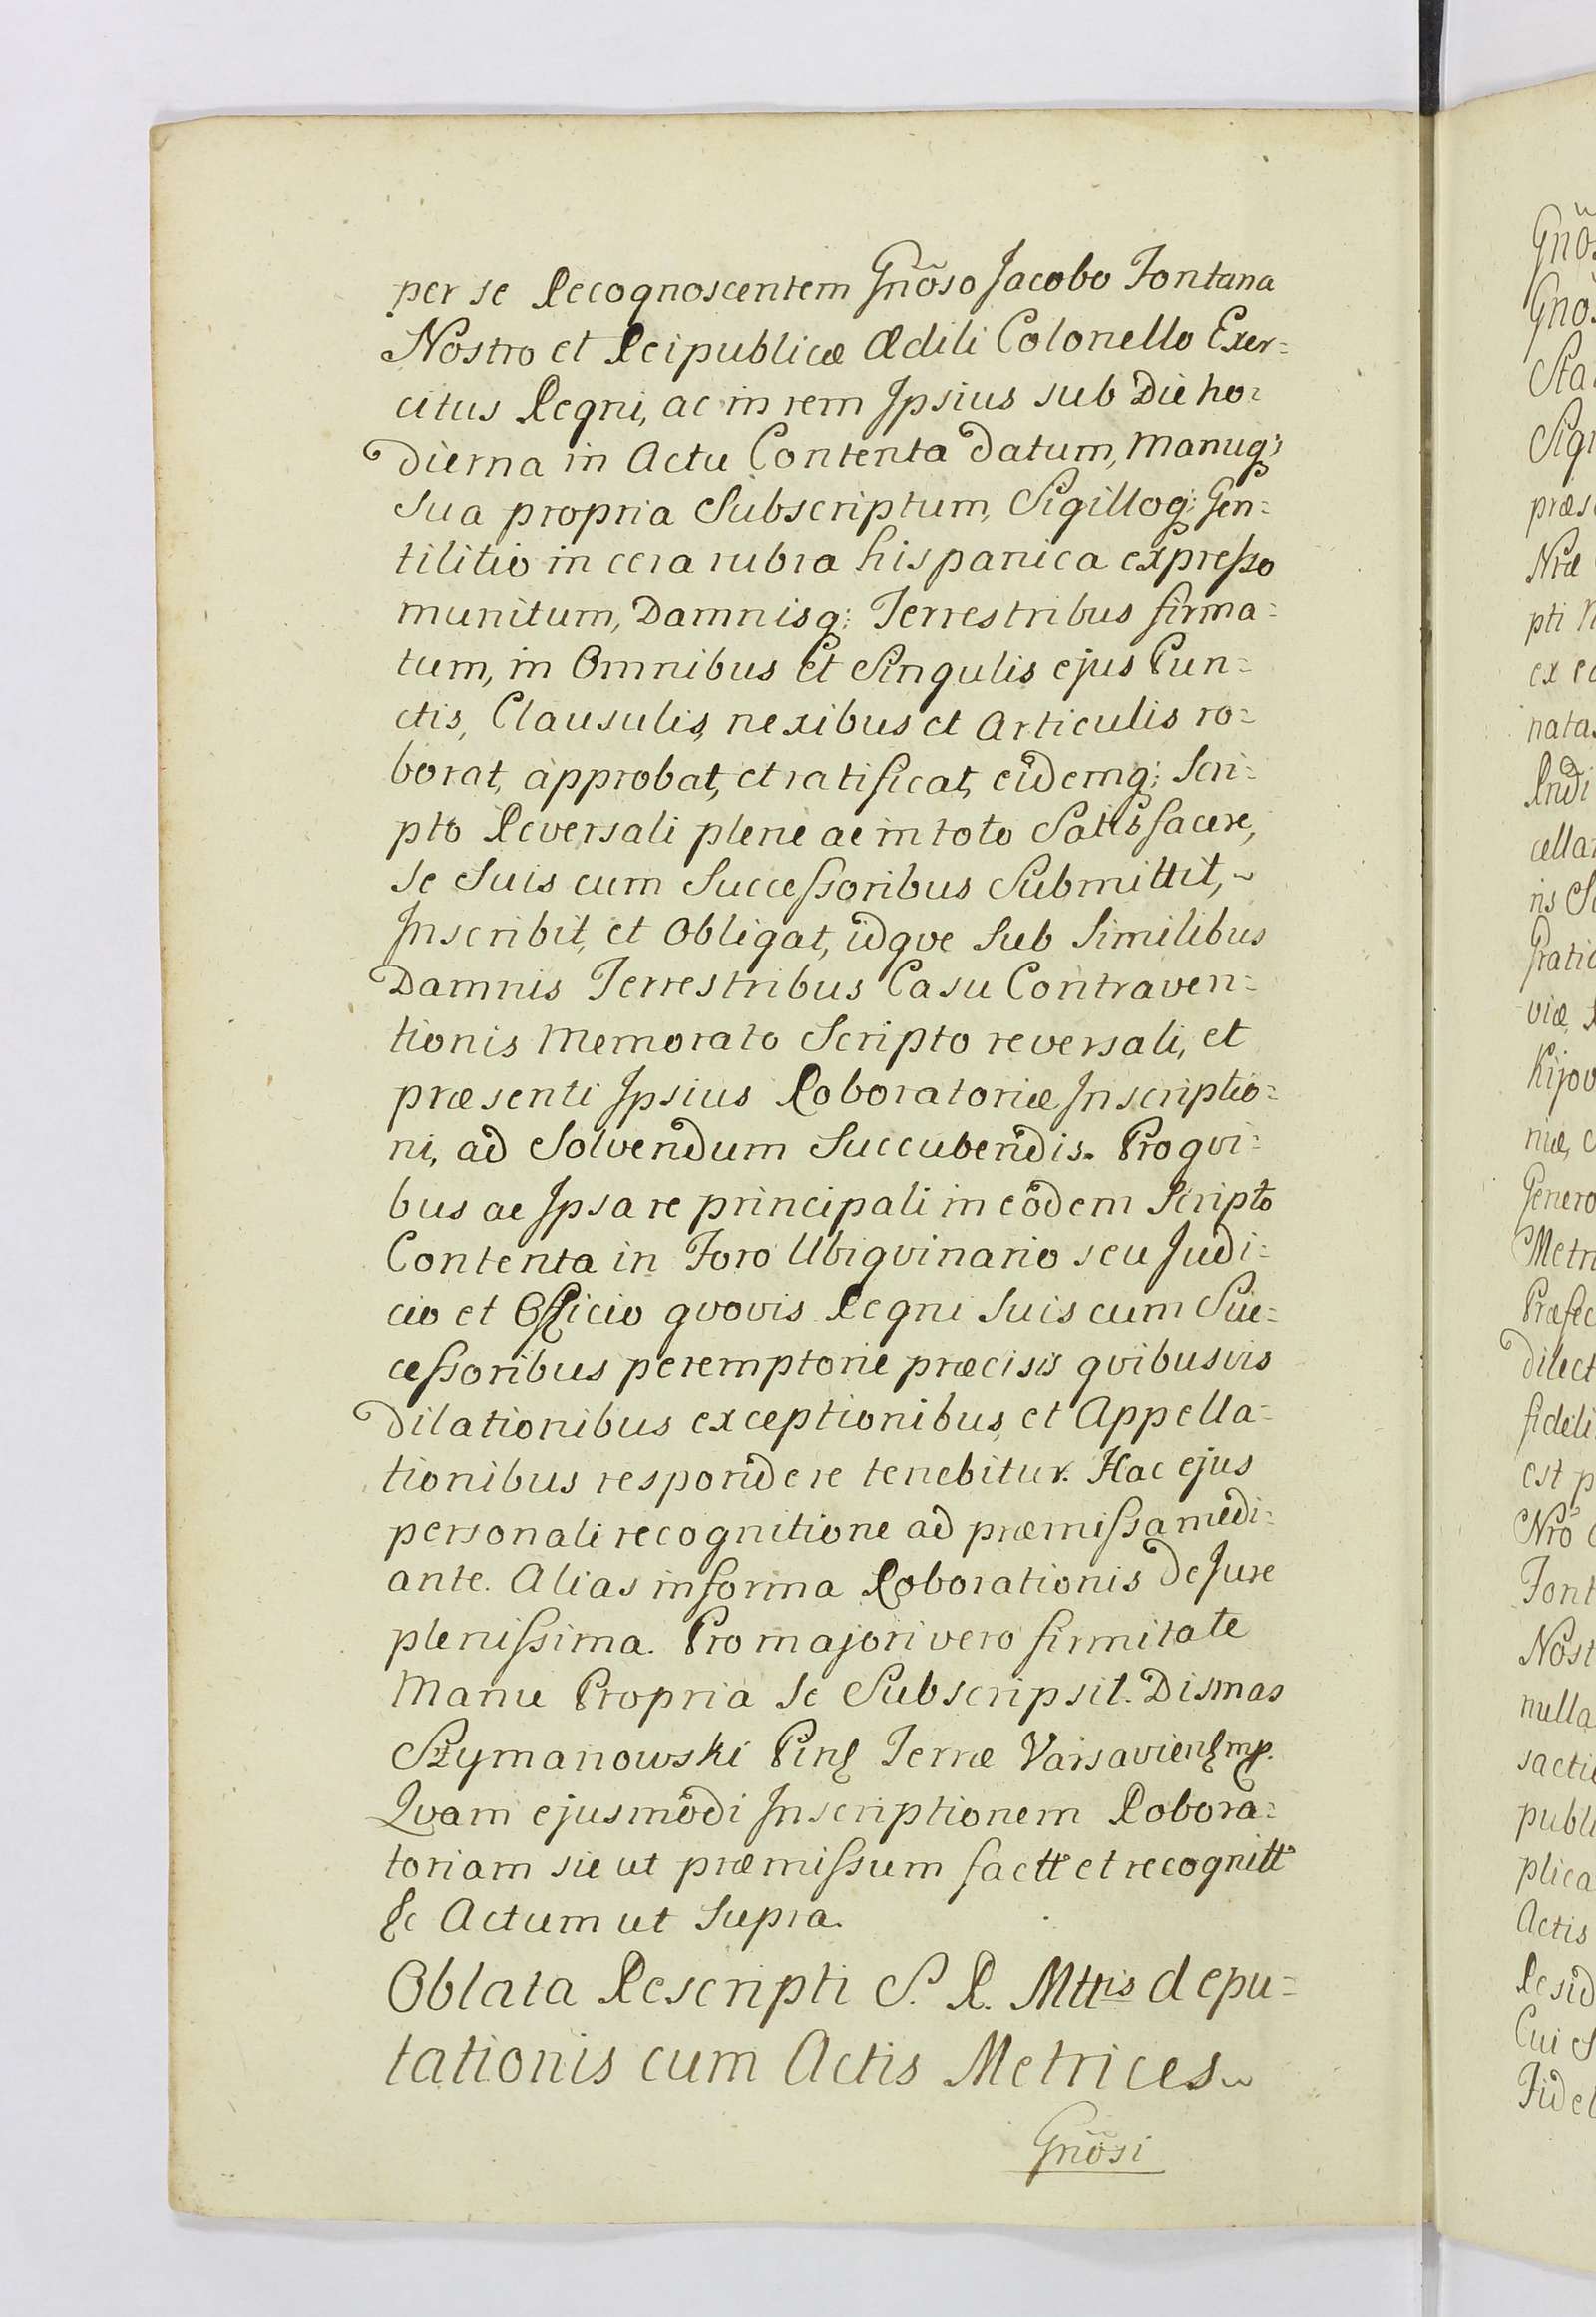 per se Recognoscentem Gnõso Jacobo Fontana
Nostro et Reipublicæ Ædili Colonello Exer=
citus Regni, ac in rem Ipsius sub Die ho=
dierna in Actu Contenta datum, Manuq;
sua propria Subscriptum, Sigilloq; Gen=
tilitio in cera rubra hispanica expresso
munitum, Damnisq; Terrestribus firma=
tum, in Omnibus et Singulis ejus Pun=
ctis, Clausulis, nexibus et Articulis ro=
borat, approbat, et ratificat, eidemq; Scri=
pto Reversali plene ac in toto Satisfacere,
Se Suis cum Successoribus Submittit, ~
Inscribit, et Obligat, idqve Sub Similibus
Damnis Terrestribus Casu Contraven=
tionis Memorato Scripto reversali, et
præsenti Ipsius Roboratoriæ Inscriptio=
ni, ad Solvendum Succubendis. Pro qvi=
bus ac Ipsa re principali in eodem Scripto
Contenta in Foro Ubiqvinario seu Judi=
cio et Officio qvovis Regni Suis cum Suc=
cessoribus peremptorie præcisis qvibusvis
dilationibus exceptionibus, et Appella=
tionibus respondere tenebitur. Hac ejus
personali recognitione ad præmissa medi=
ante. Alias in forma Roborationis de Jure
plenissima. Pro majori vero firmitate
Manu Propria Se Subscripsit. Dismas
Szymanowski Pins Terræ Varsaviens mp.
Qvam ejusmodi Inscriptionem Robora=
toriam sic ut præmissum factt et recognitt
&c Actum ut Supra.
Oblata Rescripti S. R. Mttis depu=
tationis cum Actis Metrices ~
Gnõsi
Gnõs
Gnõs
Sta
Sig
præs
Nræ
pti
ex
nata
Rndi
cella
ris
Gratio
viæ
Kijov
niæ, c
Genero
Metri
Præfec
dilect
fideli
est p
Nrõ
Font
Nost
nulla
sacti
publi
plica
Actis
Resid
Cui S
Fidel